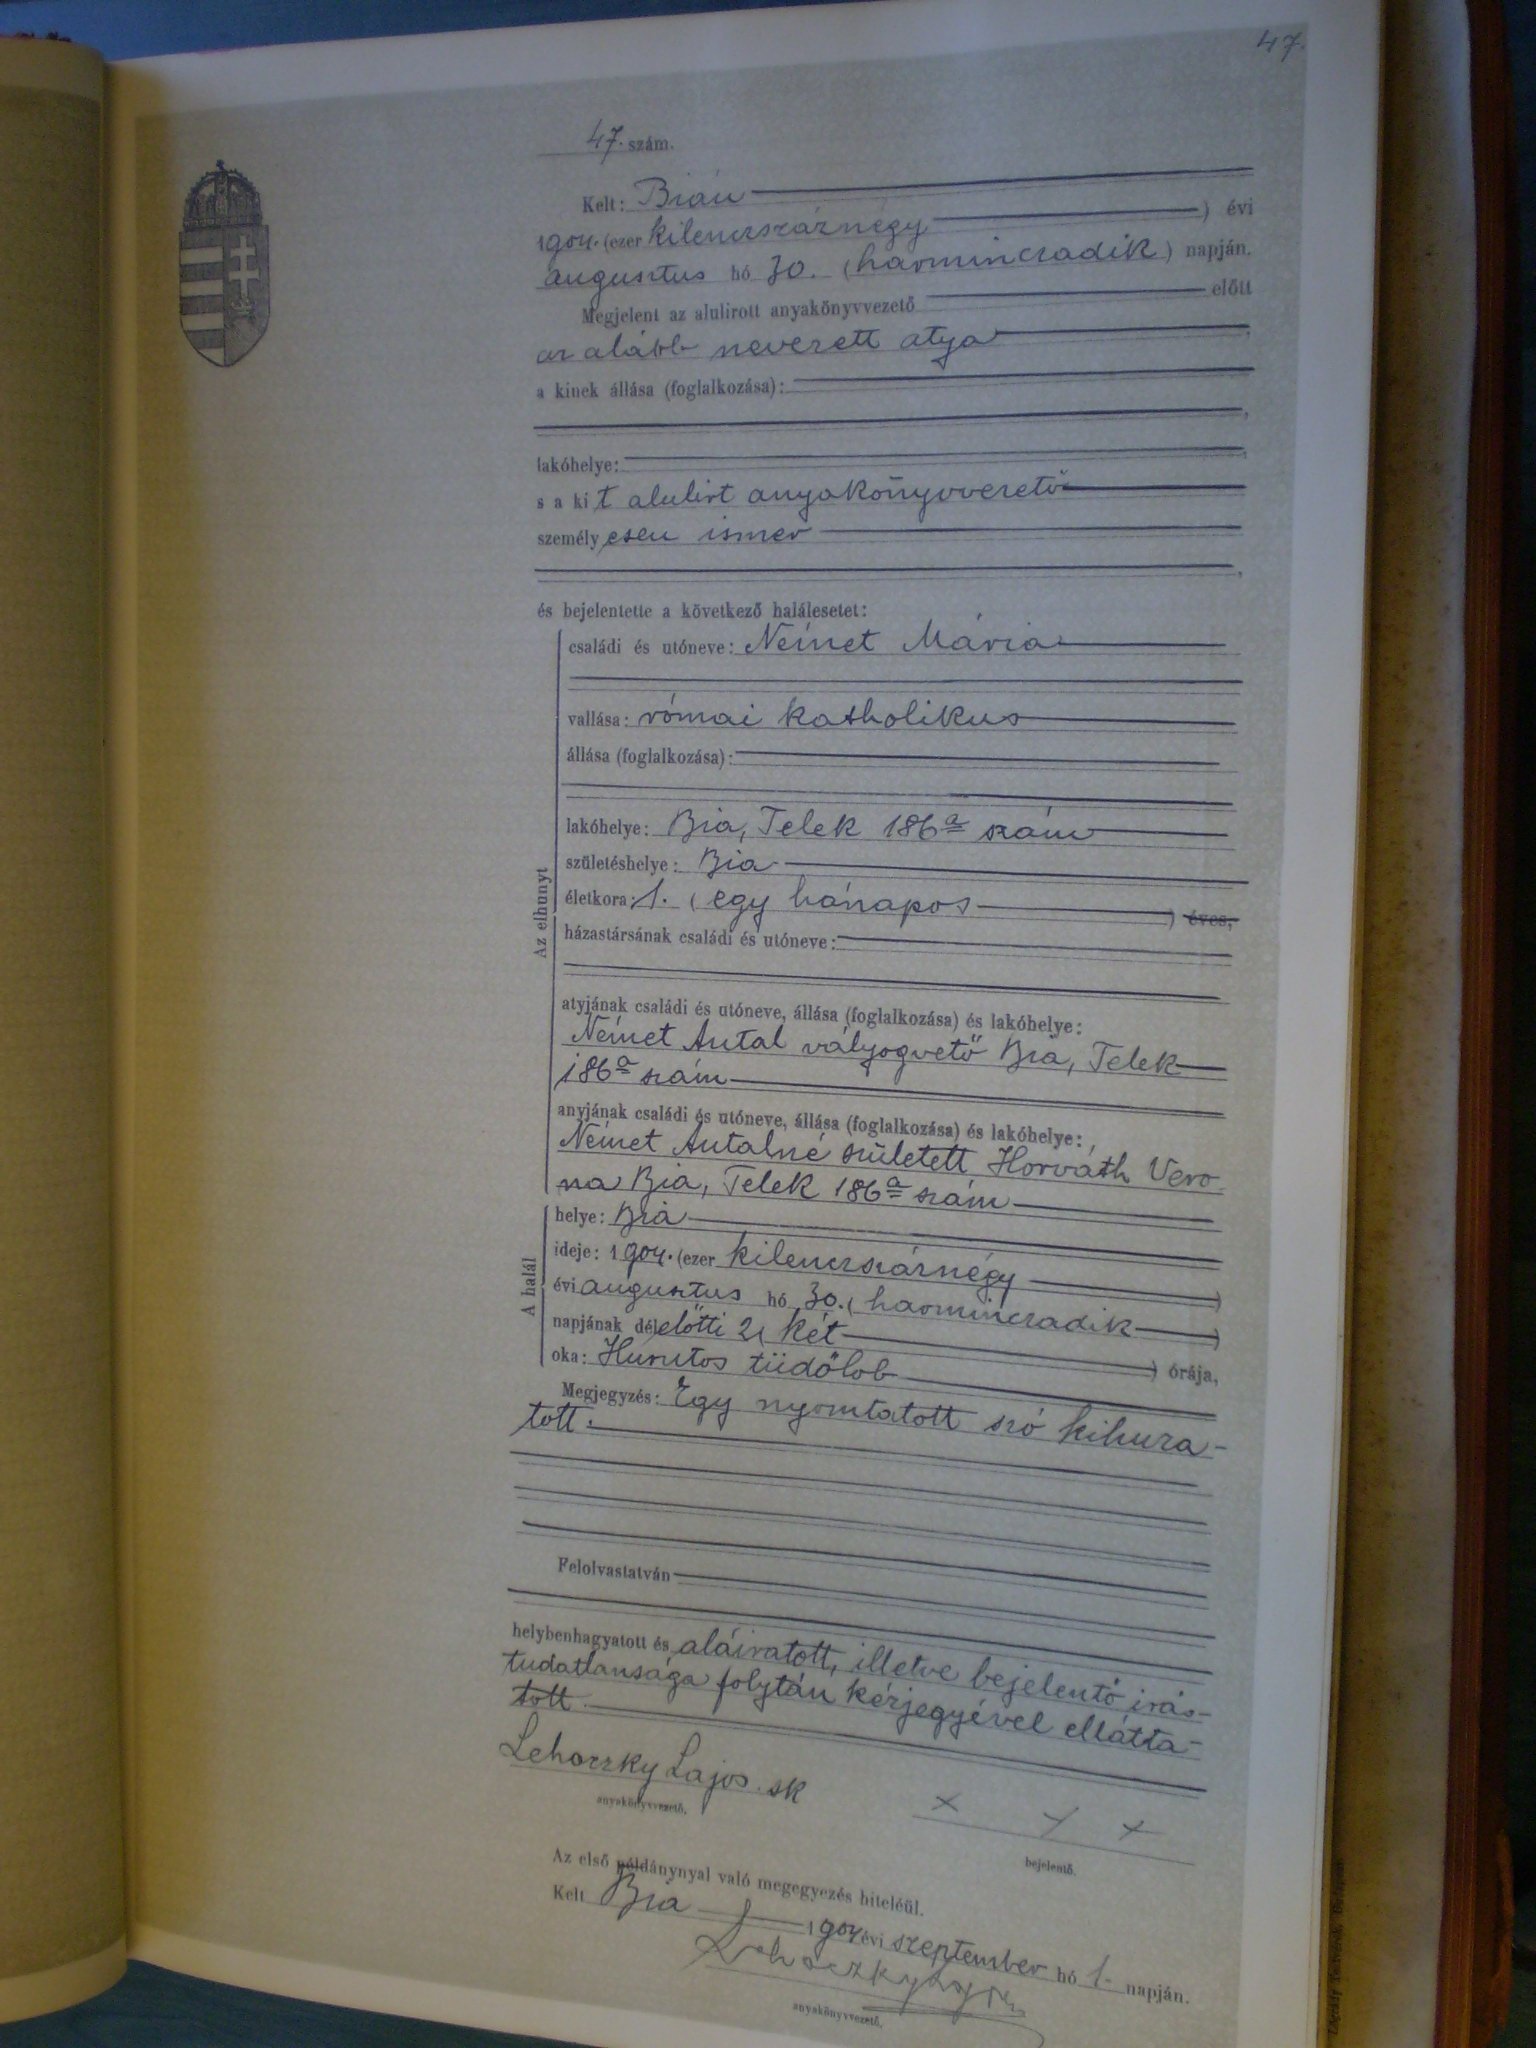 47.
47. szám.
Kelt: Bián
1904. (ezer kilenczszáznégy ) évi
augusztus hó 30. (harminczadik) napján.
Megjelent az alulirott anyakönyvvezető előtt
az alább nevezett atya
a kinek állása (foglalkozása):
lakóhelye:
s a kit alulirt anyakönyvvezető
személyesen ismer
és bejelentette a következő halálesetet:
Az elhunyt
családi és utóneve: Német Mária
vallása: római katholikus
állása (foglalkozása):
lakóhelye: Bia, Telek 186a szám
születéshelye: Bia
életkora: 1. (egy hónapos ) éves,
házastársának családi és utóneve:
atyjának családi és utóneve, állása (foglalkozása) és lakóhelye:
Német Antal vályogvető Bia, Telek
186a szám
anyjának családi és utóneve, állása (foglalkozása) és lakóhelye:
Német Antalné született Horváth Vero
na Bia, Telek 186a szám
A halál
helye: Bia
ideje: 1904. (ezer kilenczszáznégy )
évi augusztus hó 30. (harminczadik )
napjának délelőtti 2 ( két ) órája,
oka: Hurutos tüdőlob
Megjegyzés: Egy nyomtatott szó kihuza-
tott.
Felolvastatván
helybenhagyatott és aláiratott, illetve bejelentő irás-
tudatlansága folytán kézjegyével ellátta-
tott.
Lehoczky Lajos. sk
anyakönyvvezető.
x x x
bejelentő.
Az első példánynyal való megegyezés hiteléül.
Kelt Bia 1904 évi szeptember hó 1. napján.
Lehoczky Lajos
anyakönyvvezető.